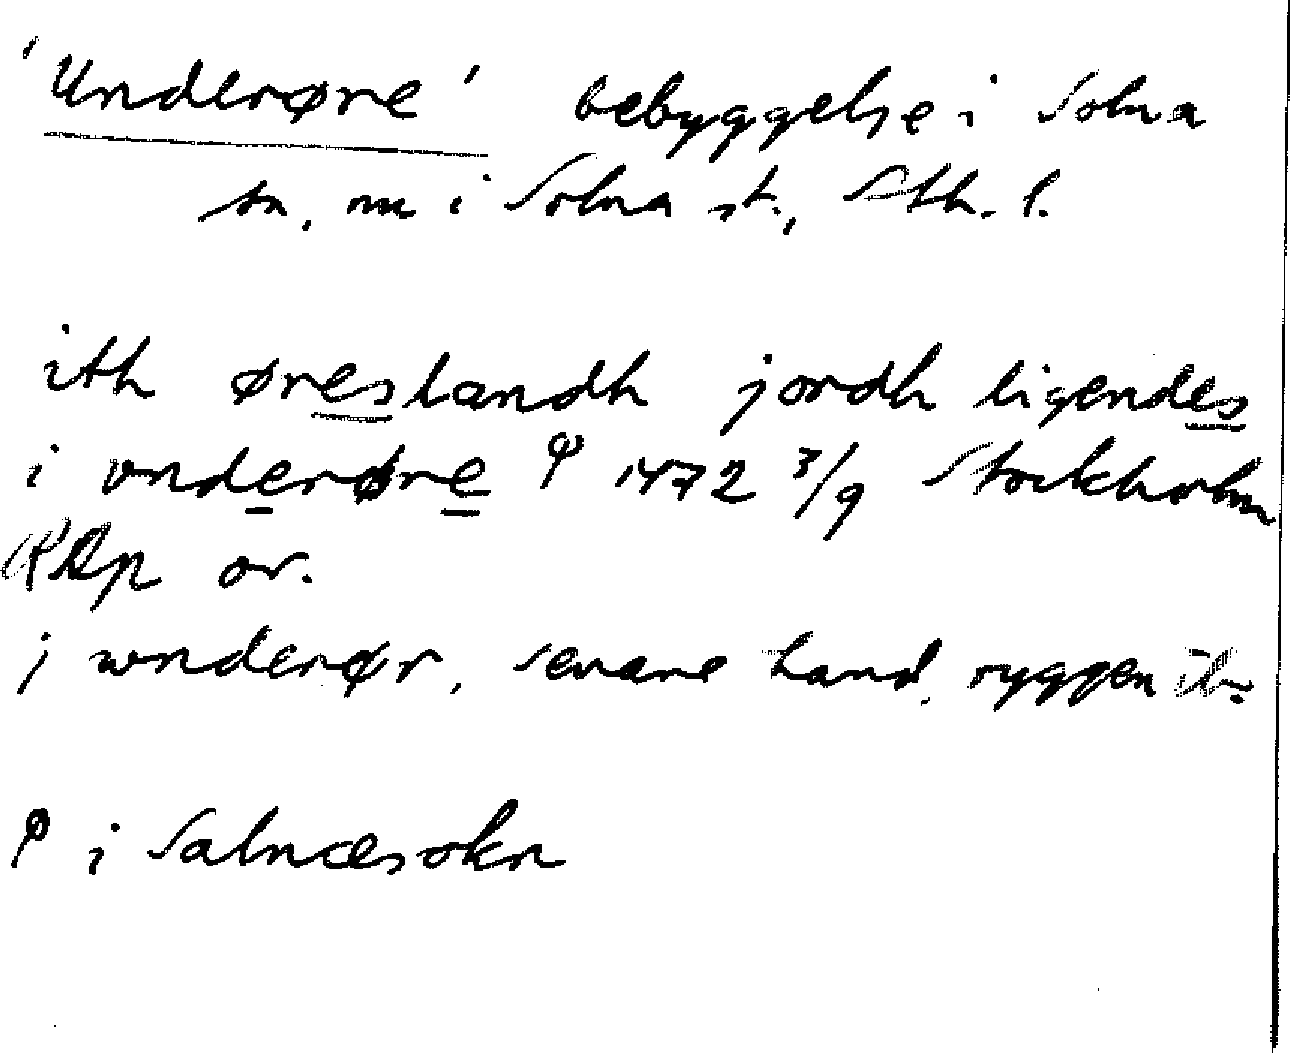 'Underøre' bebyggelse i Solna
sn, nu i Solna st., Sth. l.
ith øreslandh jordh ligendes
i vnderøre φ 1472 3/9 Stockholm
RAp or.
j wnderør, senare hand, ryggen ib.
φ i Salnæsokn